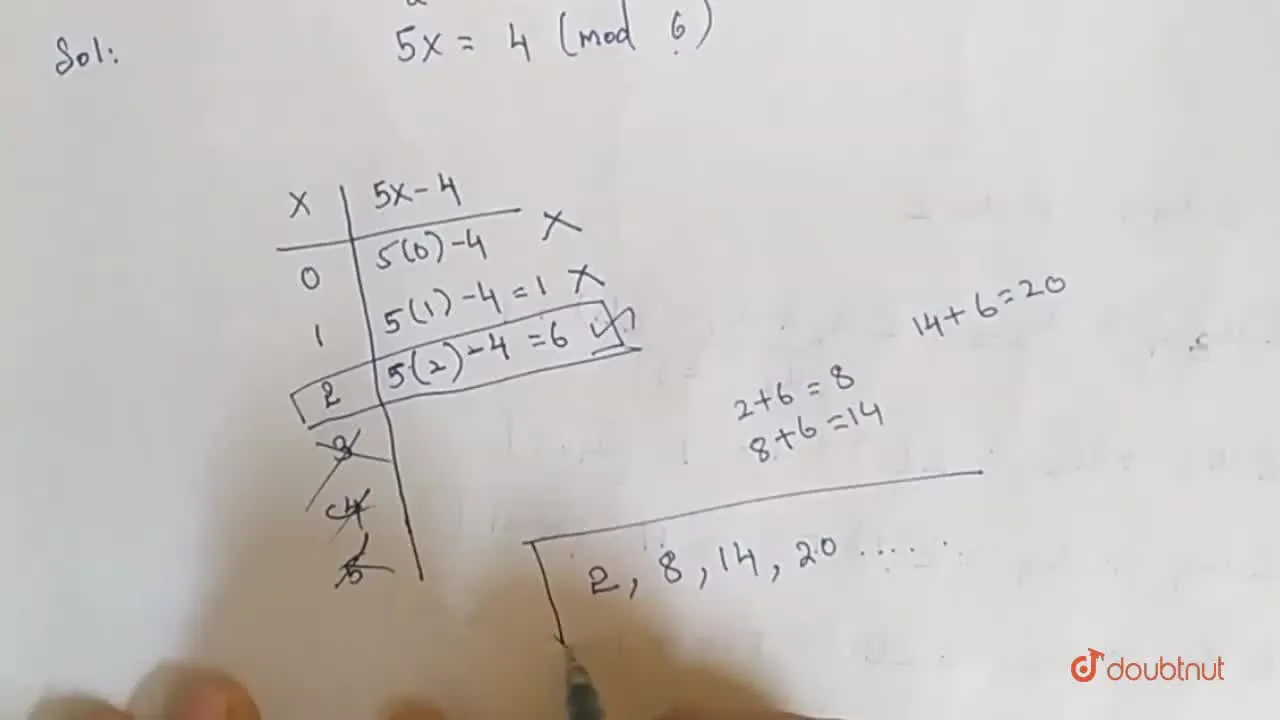 Sol: 5x = 4 (mod 6)
x | 5x - 4
0 | 5(0) - 4 X
1 | 5(1) - 4 = 1 X
2 | 5(2) - 4 = 6 ✓
3
4
5
14 + 6 = 20
2 + 6 = 8
8 + 6 = 14
2, 8, 14, 20 .....
doubtnut